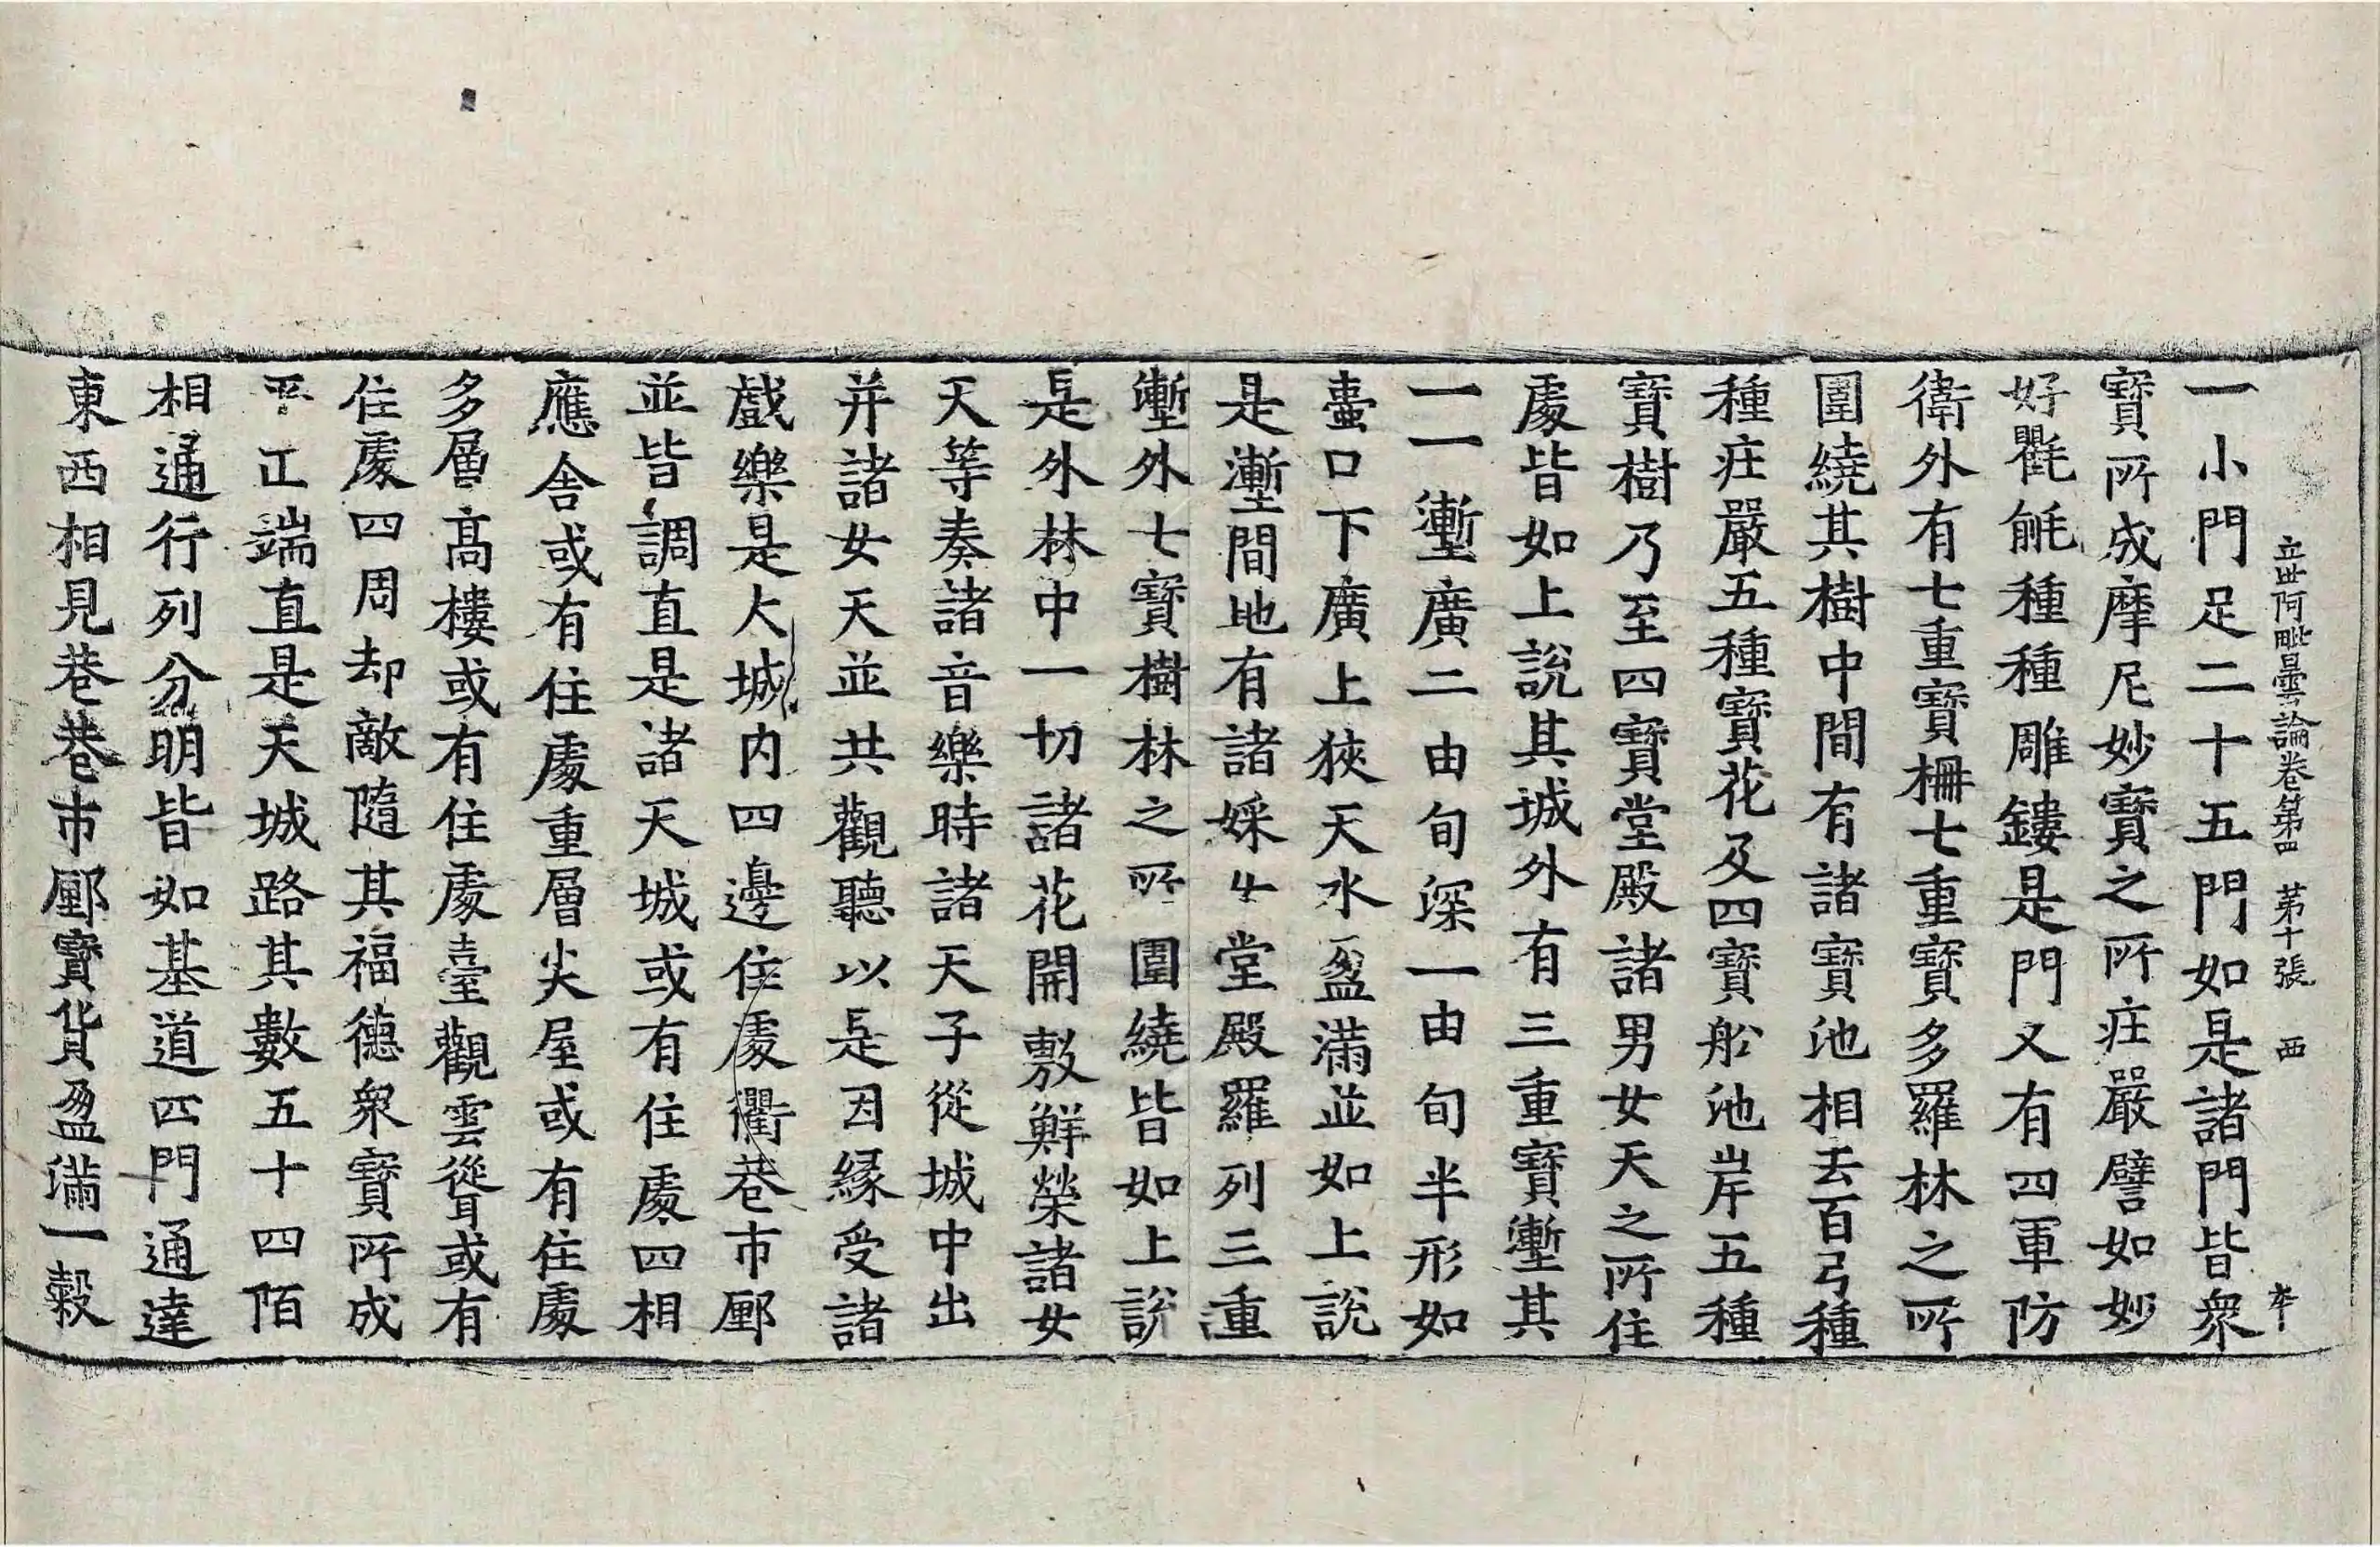 立世阿毗曇論卷第四 第十張 西
一小門足二十五門如是諸門皆衆
寶所成摩尼妙寶之所疰嚴譬如妙
好氍毹種種雕鏤是門又有四軍防
衛外有七重寶柵七重寶多羅林之所
圍繞其樹中間有諸寶池相去百弓種
種疰嚴五種寶花及四寶舩池岸五種
寶樹乃至四寶堂殿諸男女天之所住
處皆如上說其城外有三重寶壍其
一一壍廣二由旬深一由旬半形如
壷口下廣上狹天水盈滿並如上說
是壍間地有諸婇女堂殿羅列三重
壍外七寶樹林之所圍繞皆如上說
是外林中一切諸花開敷鮮榮諸女
天等奏諸音樂時諸天子從城中出
并諸女天並共觀聽以是因縁受諸
戲樂是大城内四邊住處衢巷市鄽
並皆調直是諸天城或有住處四相
應舍或有住處重層尖屋或有住處
多層髙樓或有住處臺觀雲聳或有
住處四周却敵隨其福德衆寶所成
平正端直是天城路其數五十四陌
相通行列分明皆如基道四門通達
東西相見巷巷市鄽寶貨盈滿一穀